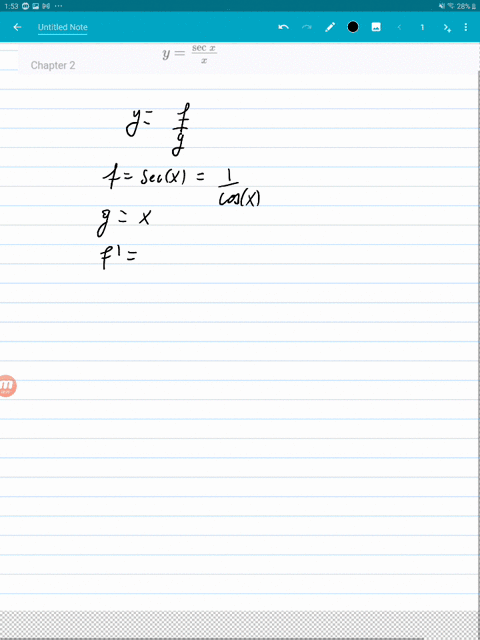 1:53
28%
Untitled Note
1
y = sec x / x
Chapter 2
y = f / g
f = sec(x) = 1 / cos(x)
g = x
f' =